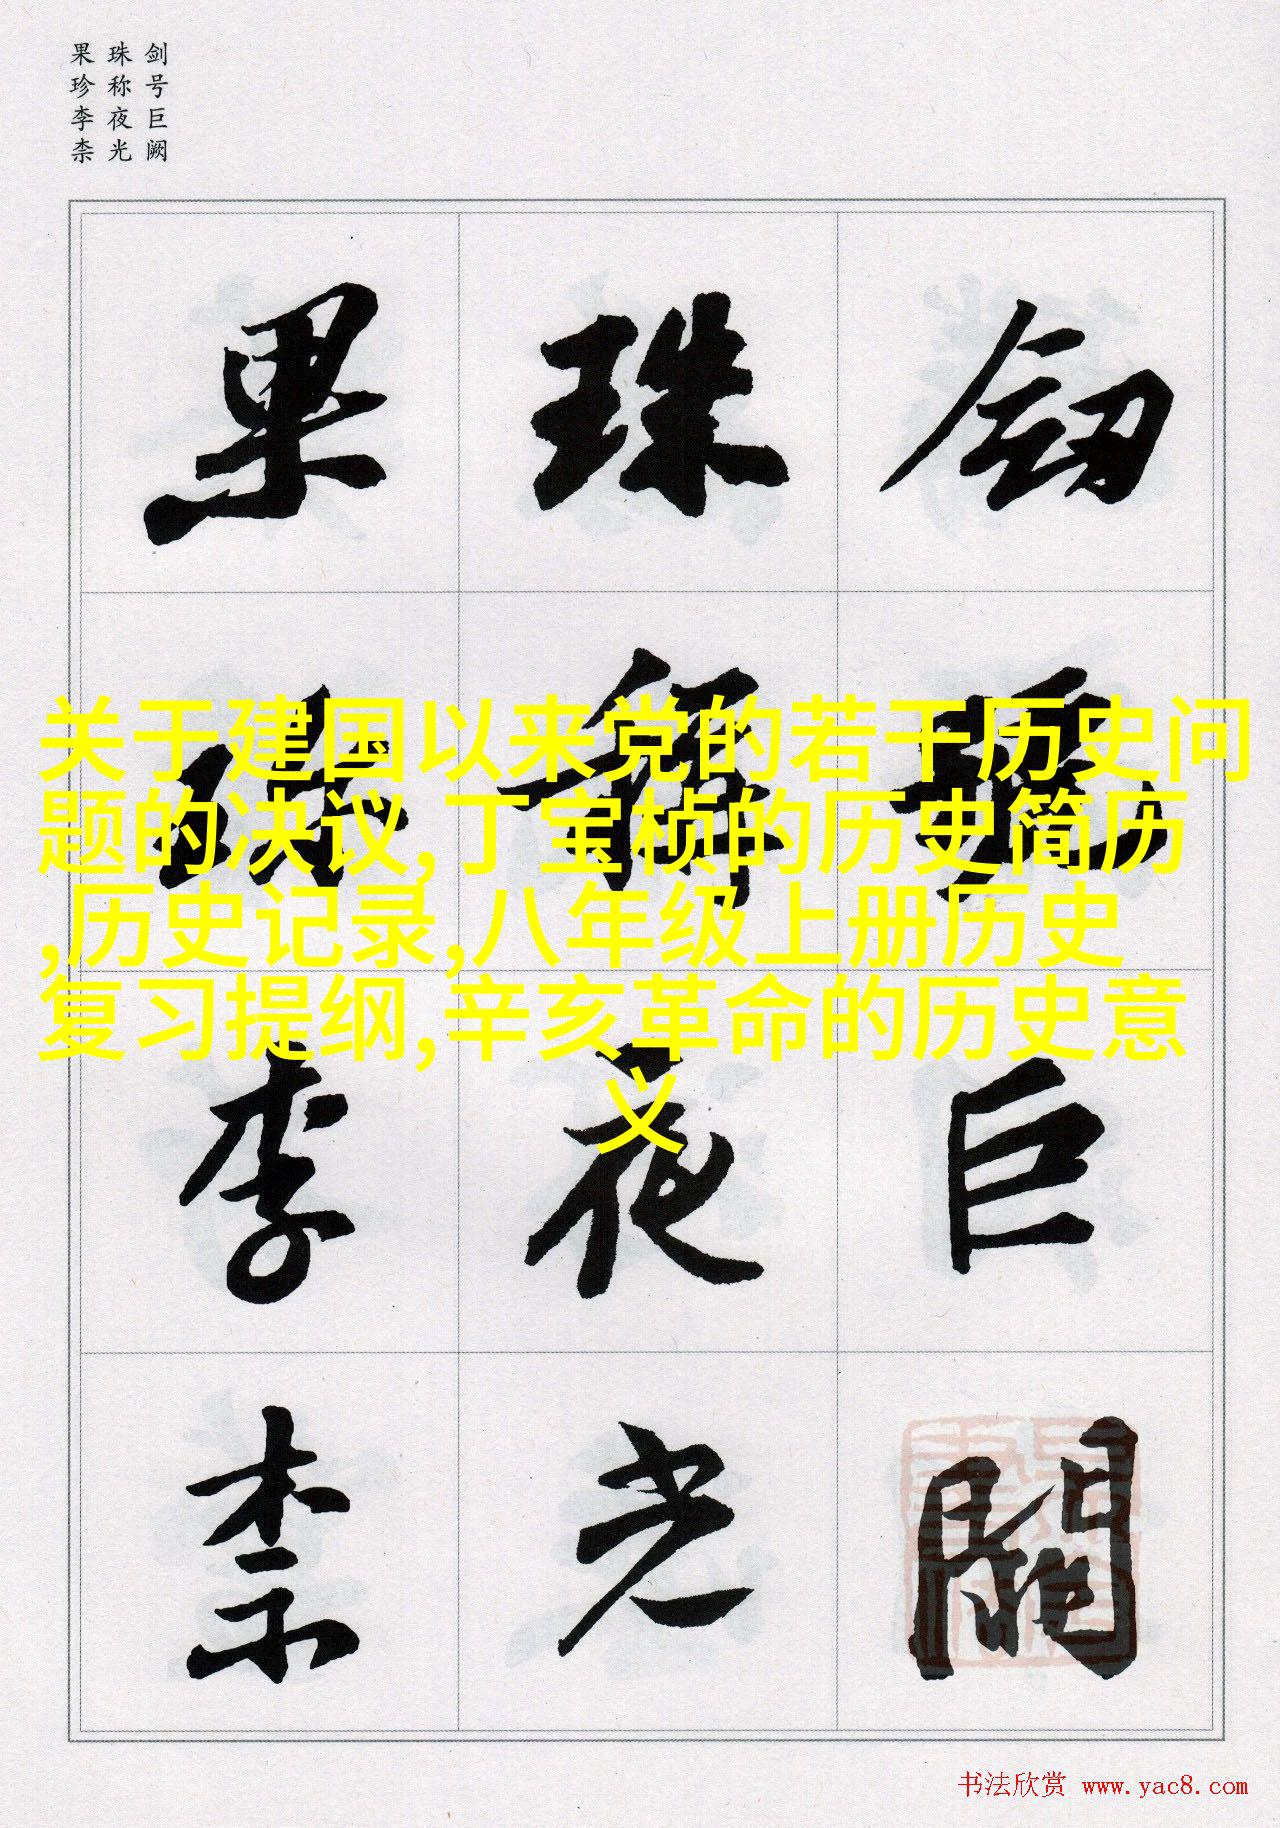 剑号巨阙
珠称夜光
果珍李柰
剑号巨阙
珠称夜光
果珍李柰
关于建国以来党的若干历史问
题的决议,丁宝桢的历史简历
,历史记录,八年级上册历史
复习提纲,辛亥革命的历史意
义
书法欣赏 www.yac8.com